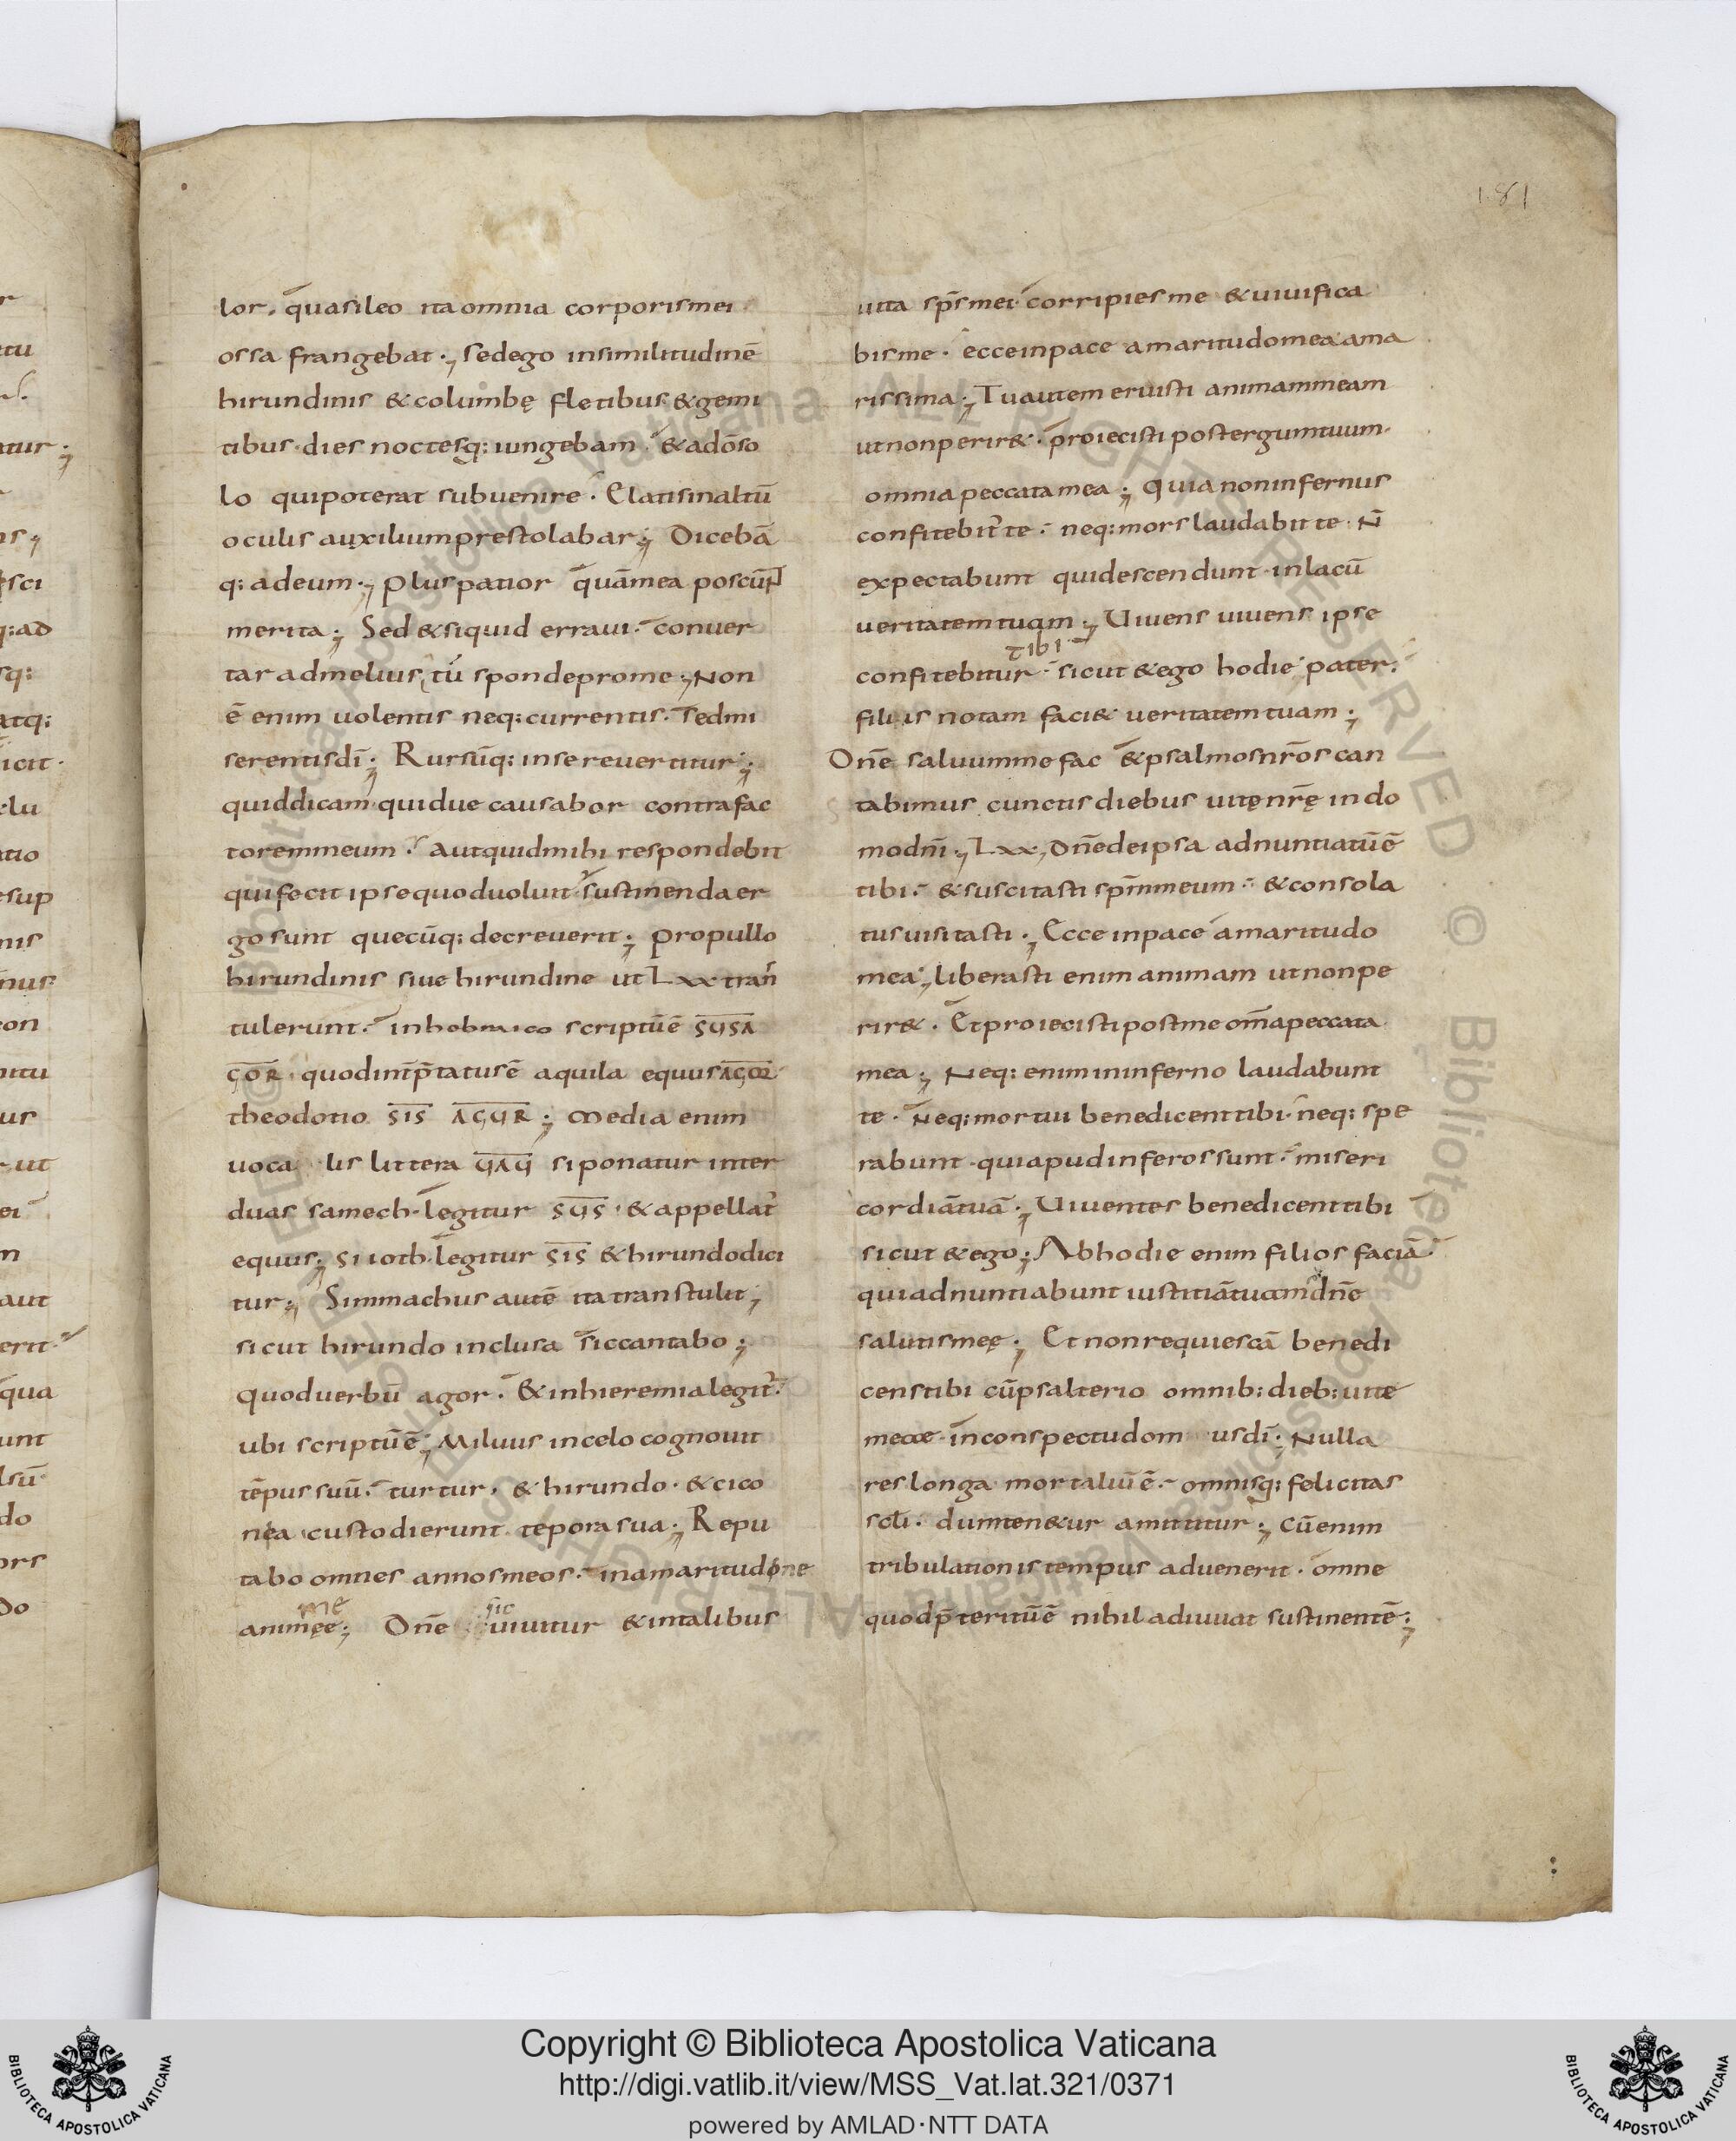 181
lor. quasi leo ita omnia corporis mei
ossa frangebat·, sed ego in similitudinē
hirundinis & columbę fletibus & gemi
tibus· dies noctesq: iungebam· & ad ōso
lo qui poterat subuenire· Elatis in altū
oculis auxilium prestolabar·, Dicebā
q: ad eum·, plus patior quā mea poscūN
merita·, Sed & si quid erraui· conuer
tar ad melius, tu sponde pro me·, Non
ē enim uolentis neq: currentis· sed mi
serentis dī·, Rursūq: in se reuertitur·,
quid dicam· quid ue causabor contra fac
torem meum· aut quid mihi respondebit
qui fecit ipse quod uoluit· sustinenda er
go sunt quecūq: decreuerit·, pro pullo
hirundinis siue hirundine ut Lxx tran
tulerunt· in hebraico scriptū ē SUSA
GOR· quod intp̄tatus ē aquila equus AGOR
theodotio SIS AGUR·, Media enim
uoca lis littera UAU si ponatur inter
duas samech· legitur SUS· & appellat'
equus·, si ioth· legitur SIS & hirundo dici
tur·, Simmachus autē ita transtulit·,
sicut hirundo inclusa sic cantabo·,
quod uerbū agor· & in hieremia legit'·
ubi scriptū ē·, Miluus in celo cognouit
tēpus suū· turtur· & hirundo· & cico
nea custodierunt tēpora sua·, Repu
tabo omnes annos meos· in amaritudine
me
animęe·, Dn̄e
sic
uiuitur & in talibus
uita sp̄s mei· corripies me & uiuifica
bis me· ecce in pace amaritudo mea ama
rissima·, Tu autem eruisti animam meam
ut non perir&· proiecisti post ergum tuum·
omnia peccata mea·, Quia non infernus
confitebit' te· neq: mors laudabit te· N̄
expectabunt qui descendunt in lacū
ueritatem tuam·, Uiuens uiuens ipse
tibi
confitebitur· sicut & ego hodie· pater·
filiis notam faci& ueritatem tuam·,
Dn̄e saluum me fac & psalmos nr̄os can
tabimus cunctis diebus uitę nr̄ę in do
mo dn̄i·, Lxx, dn̄e de ipsa adnuntiatū ē
tibi· & suscitasti sp̄m meum· & consola
tus uisitasti·, Ecce in pace amaritudo
mea·, liberasti enim animam ut non pe
rir&· Et proiecisti post me om̄a peccata
mea·, Neq: enim in inferno laudabunt
te· Neq: mortui benedicent tibi· neq: spe
rabunt· qui apud inferos sunt· miseri
cordiā tuā·, Uiuentes benedicent tibi
sicut & ego·, Ab hodie enim filios faciā
qui adnuntiabunt iustitiā tuam dn̄e
salutis meę·, Et non requiescā benedi
cens tibi cū psalterio omnib: dieb: uite
meae in conspectu dom us dī·, Nulla
res longa mortaliū ē· omnisq: felicitas
sc̄li· dum ten&ur amittitur·, cū enim
tribulationis tempus aduenerit· omne
quod p̄teritū ē nihil adiuuat sustinentē·,
Copyright © Biblioteca Apostolica Vaticana
http://digi.vatlib.it/view/MSS_Vat.lat.321/0371
powered by AMLAD·NTT DATA
BIBLIOTECA APOSTOLICA VATICANA
BIBLIOTECA APOSTOLICA VATICANA